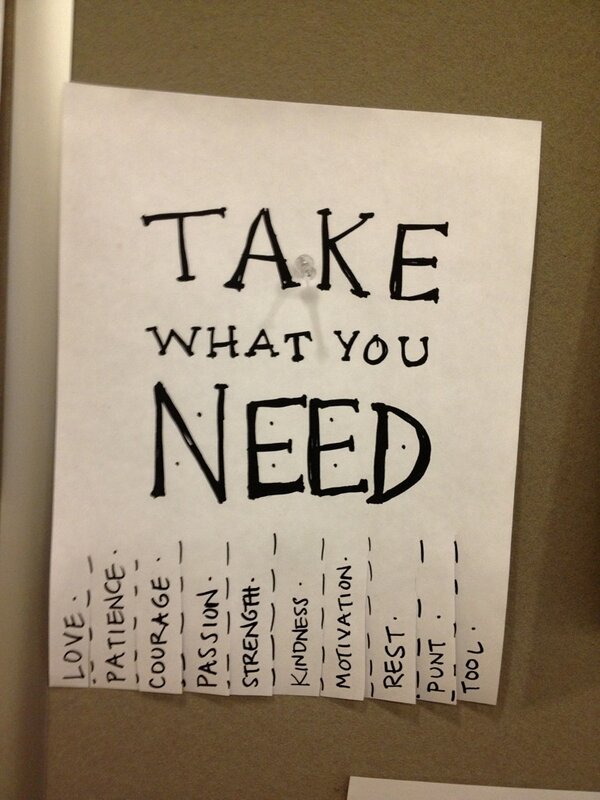 TAKE
WHAT YOU
NEED
LOVE.
PATIENCE.
COURAGE.
PASSION.
STRENGTH.
KINDNESS.
MOTIVATION.
REST.
PUNT.
TOOL.